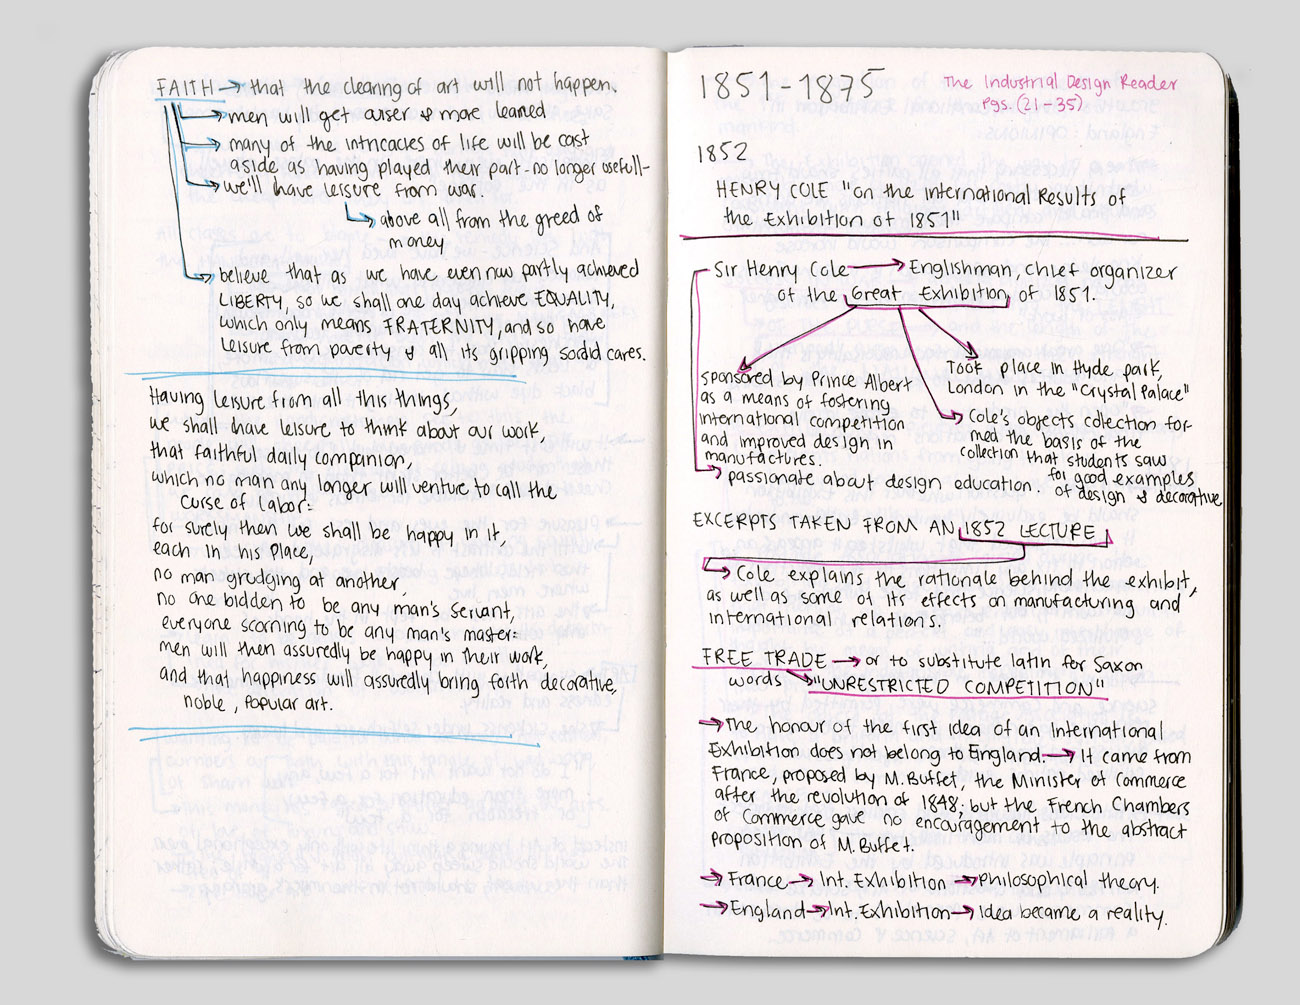 FAITH → that the clearing of art will not happen.
→ men will get wiser & more learned
→ many of the intricacies of life will be cast
aside as having played their part - no longer usefull -
→ we'll have leisure from war.
→ above all from the greed of
money
→ believe that as we have even now partly achieved
LIBERTY, so we shall one day achieve EQUALITY,
which only means FRATERNITY, and so have
leisure from poverty & all its gripping sodid cares.
Having leisure from all this things,
we shall have leisure to think about our work,
that faithful daily companion,
which no man any longer will venture to call the
curse of Labor:
for surely then we shall be happy in it,
each in his place,
no man grudging at another,
no one bidden to be any man's servant,
everyone scorning to be any man's master:
men will then assuredly be happy in their work,
and that happiness will assuredly bring forth decorative,
noble, popular art.
1851-1875
The Industrial Design Reader
pgs. (21-35)
1852
HENRY COLE "on the international Results of
the Exhibition of 1851"
Sir Henry Cole → Englishman, chief organizer
of the Great Exhibition of 1851.
sponsored by Prince Albert
as a means of fostering
international competition
and improved design in
manufactures.
Took place in Hyde park,
London in the "Crystal Palace"
Cole's objects collection for-
med the basis of the
collection that students saw
for good examples
of design & decorative
→ passionate about design education.
EXCERPTS TAKEN FROM AN 1852 LECTURE
→ Cole explains the rationale behind the exhibit,
as well as some of its effects on manufacturing and
international relations.
FREE TRADE → or to substitute latin for Saxon
words → "UNRESTRICTED COMPETITION"
→ The honour of the first idea of an International
Exhibition does not belong to England. → It came from
France, proposed by M. Buffet, the Minister of Commerce
after the revolution of 1848; but the French Chambers
of Commerce gave no encouragement to the abstract
proposition of M. Buffet.
→ France → Int. Exhibition → Philosophical theory.
→ England → Int. Exhibition → Idea became a reality.